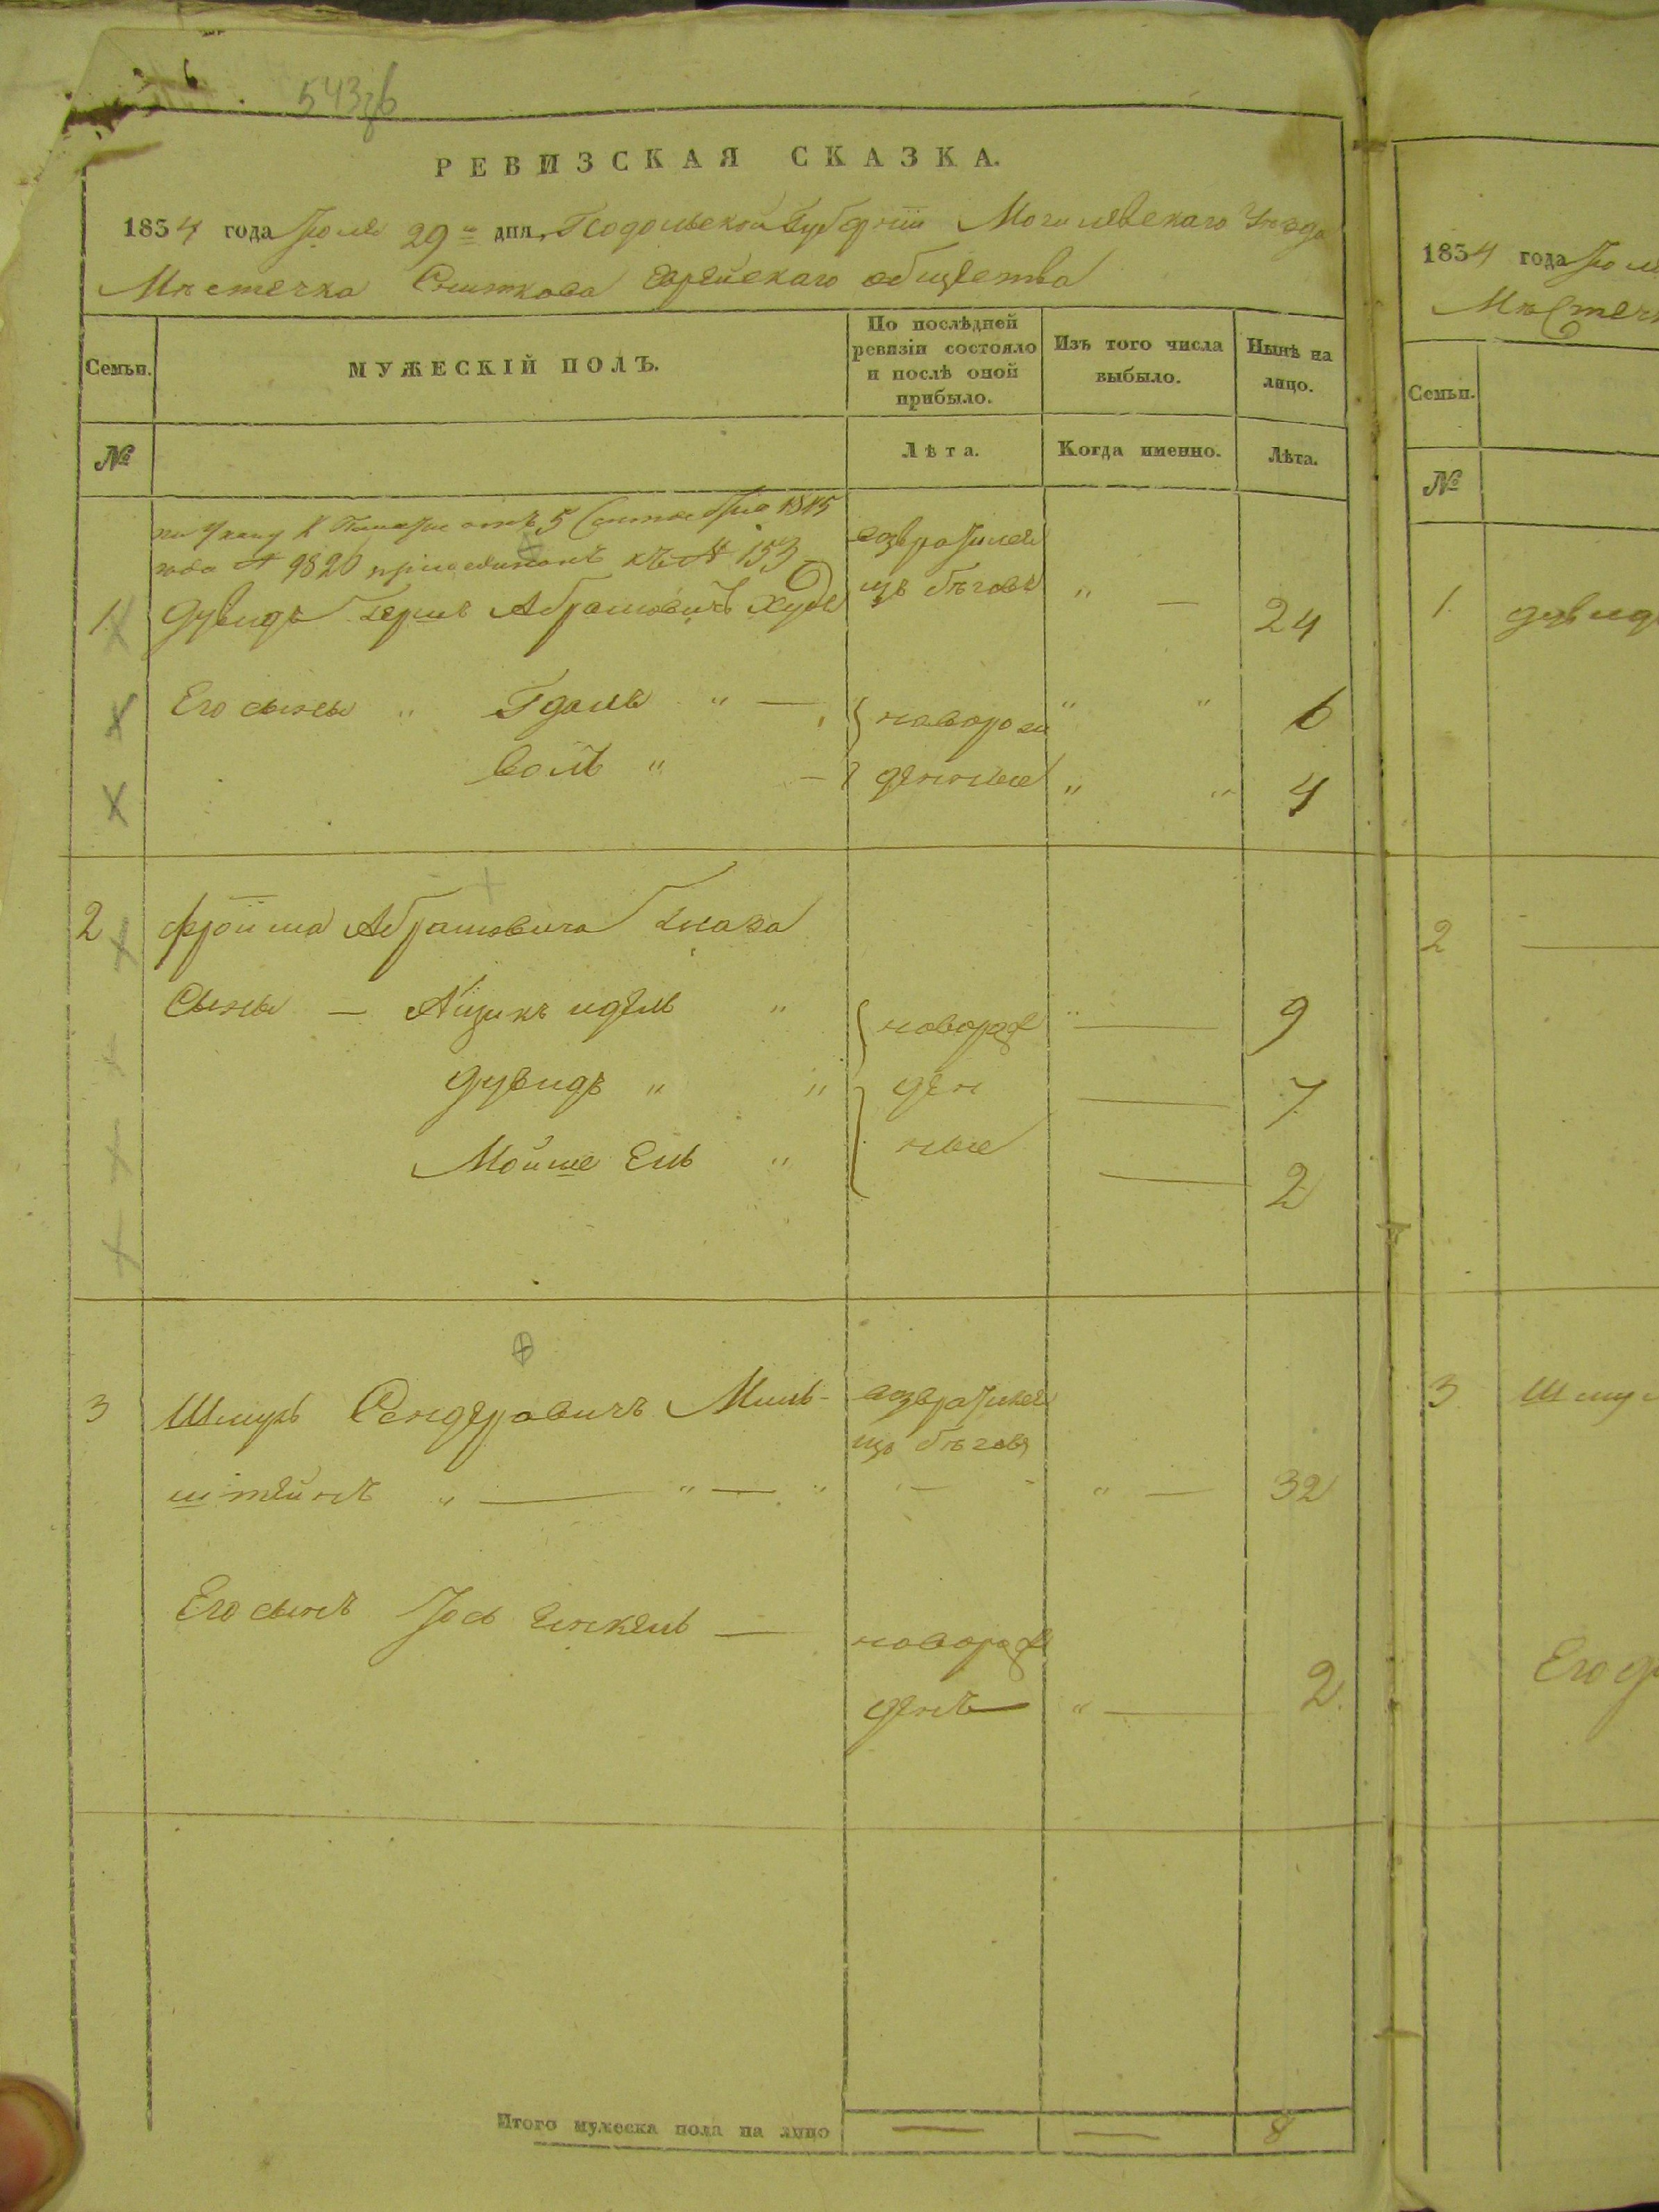 543зв
РЕВИЗСКАЯ СКАЗКА.
1854 года Июля 29го дня, Подольской Губерніи Могилевскаго Уезда
Мѣстечка Сниткова Еврейскаго общества
Семьи.
МУЖЕСКІЙ ПОЛЪ.
По послѣдней ревизіи состояло и послѣ оной прибыло.
Изъ того числа выбыло.
Нынѣ на лицо.
№
Лѣта.
Когда именно.
Лѣта.
по Указу К Палаты отъ 5 Сентября
года № 9820 присоединенъ къ № 153
возвратился
изъ бѣговъ
1 Дувидъ Герш Абрамовичъ " — 24
Его сыны " Гдаль " — новорож " " 6
Волъ " — денные " " 4
2 Фроима Абрамовича
Сыны — Айцикъ идель " новорож " — 9
Дувидъ " " ден — 7
Мойше Ель " ные — 2
3 Шмуль Сендеровичъ Миль- возвратился
изъ бѣговъ
штейнъ " — " — " " — " — 32
Его сынъ Іось Янкель — новорож
денъ " — 2
Итого мужеска пола на лицо — — 8
1854 года Июл
Мѣстеч
Семьи.
№
1. Дувид
2 —
3 Шму
Его